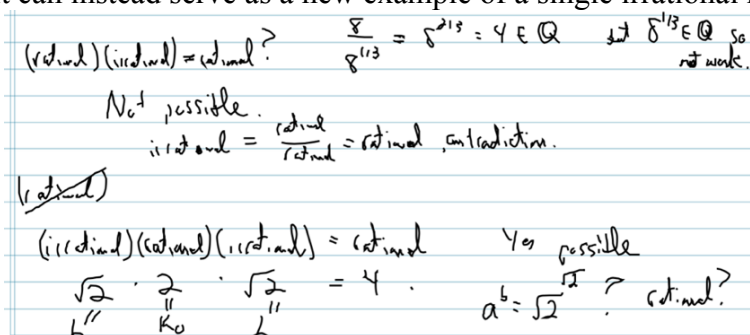 t can instead serve as a new example of a single irrational
(rational)(irrational) = rational? 8/8^{1/3} = 8^{2/3} = 4 ∈ ℚ but 8^{1/3} ∈ ℚ so
not work.
Not possible.
irrational = rational/rational = rational, contradiction.
(rational)
(irrational)(rational)(irrational) = rational Yes possible
√2 · 2 · √2 = 4. a^b = √2^{√2} ? rational?
b" K₀